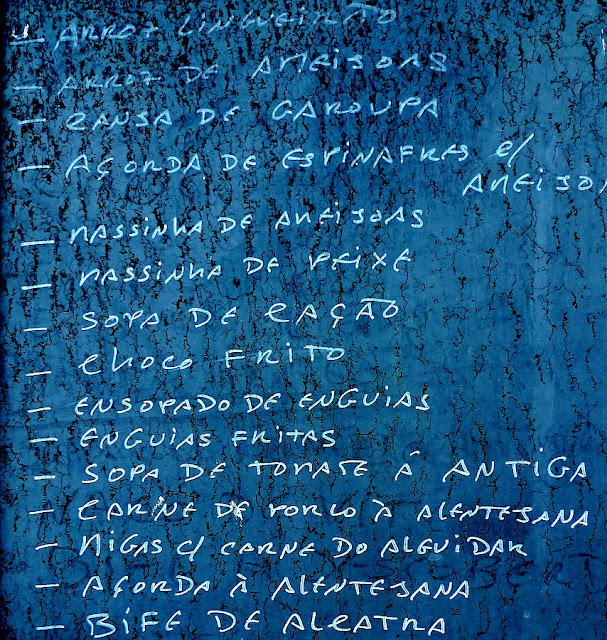 — ARROZ LINGUEIRÃO
— ARROZ DE AMEIJOAS
— CANJA DE GAROUPA
— AÇORDA DE ESPINAFRES C/
AMEIJOA
— MASSINHA DE AMEIJOAS
— MASSINHA DE PEIXE
— SOPA DE CAÇÃO
— CHOCO FRITO
— ENSOPADO DE ENGUIAS
— ENGUIAS FRITAS
— SOPA DE TOMATE Á ANTIGA
— CARNE DE PORCO À ALENTEJANA
— MIGAS C/ CARNE DO ALGUIDAR
— AÇORDA À ALENTEJANA
— BIFE DE ALCATRA